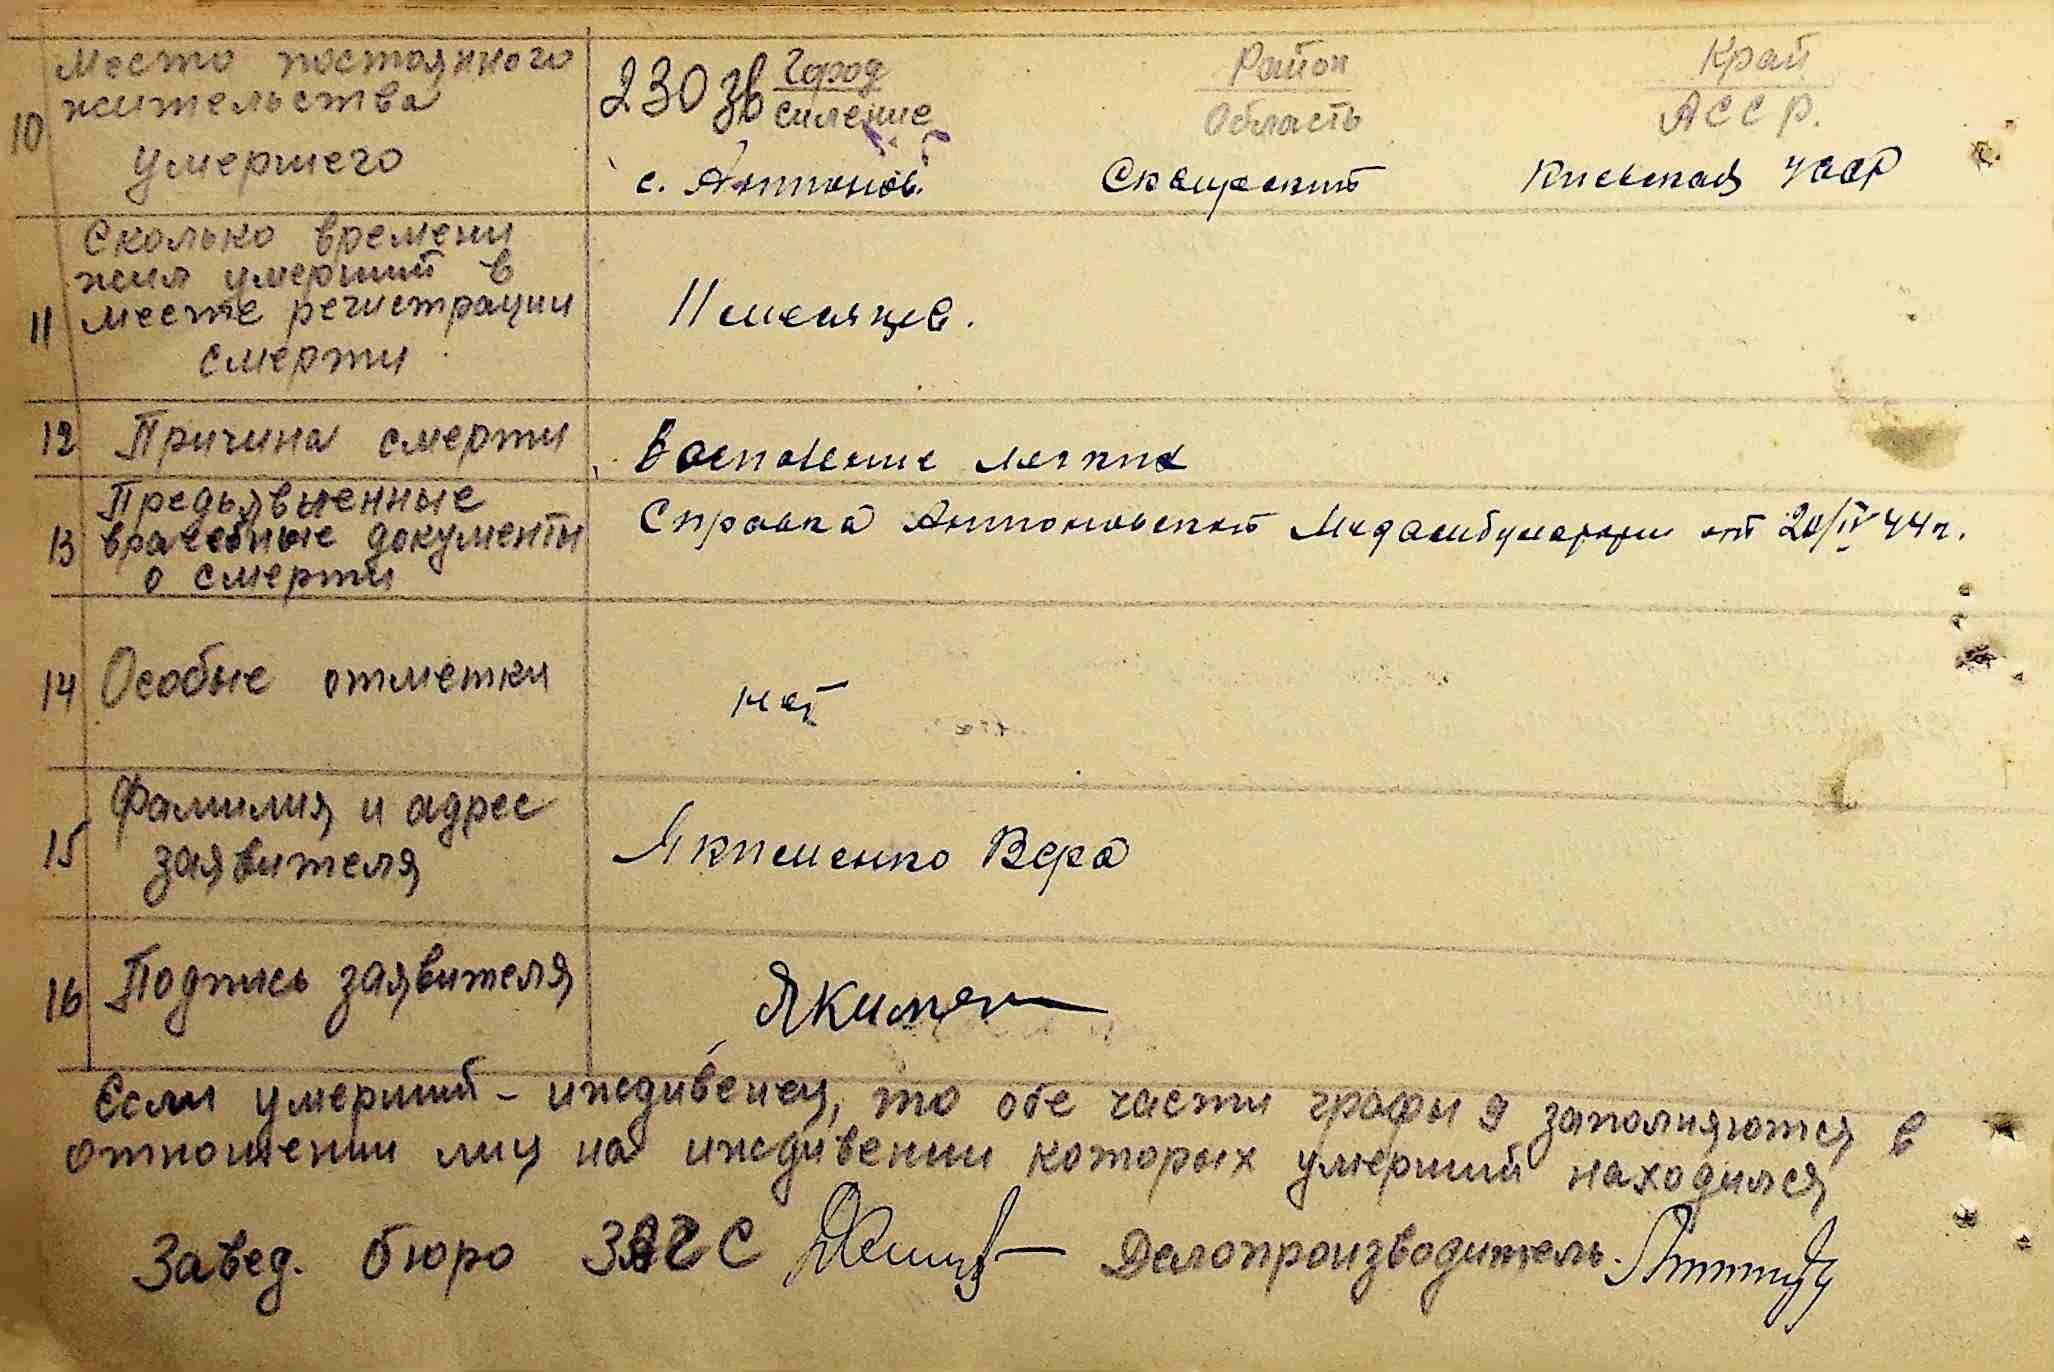 Место постоянного
жительства
10
умершего
230 зв Город Район Край
силение Область АССР.
с. Антонов. Сквирский Киевская УССР
Сколько времени
жил умерший в
11 месте регистрации
смерти
11 месяцев.
12 Причина смерти
Воспаление легких
Предъявленные
13 врачебные документы
о смерти
Справка Антоновской Медамбулатории от 20/IV 44 г.
14 Особые отметки
нет
Фамилия и адрес
15 заявителя
Якименко Вера
16 Подпись заявителя
Якимен
Если умерший - иждивенец, то обе части графы 9 заполняются в
отношении лиц на иждивении которых умерший находился
Завед. бюро ЗАГС Делопроизводитель.